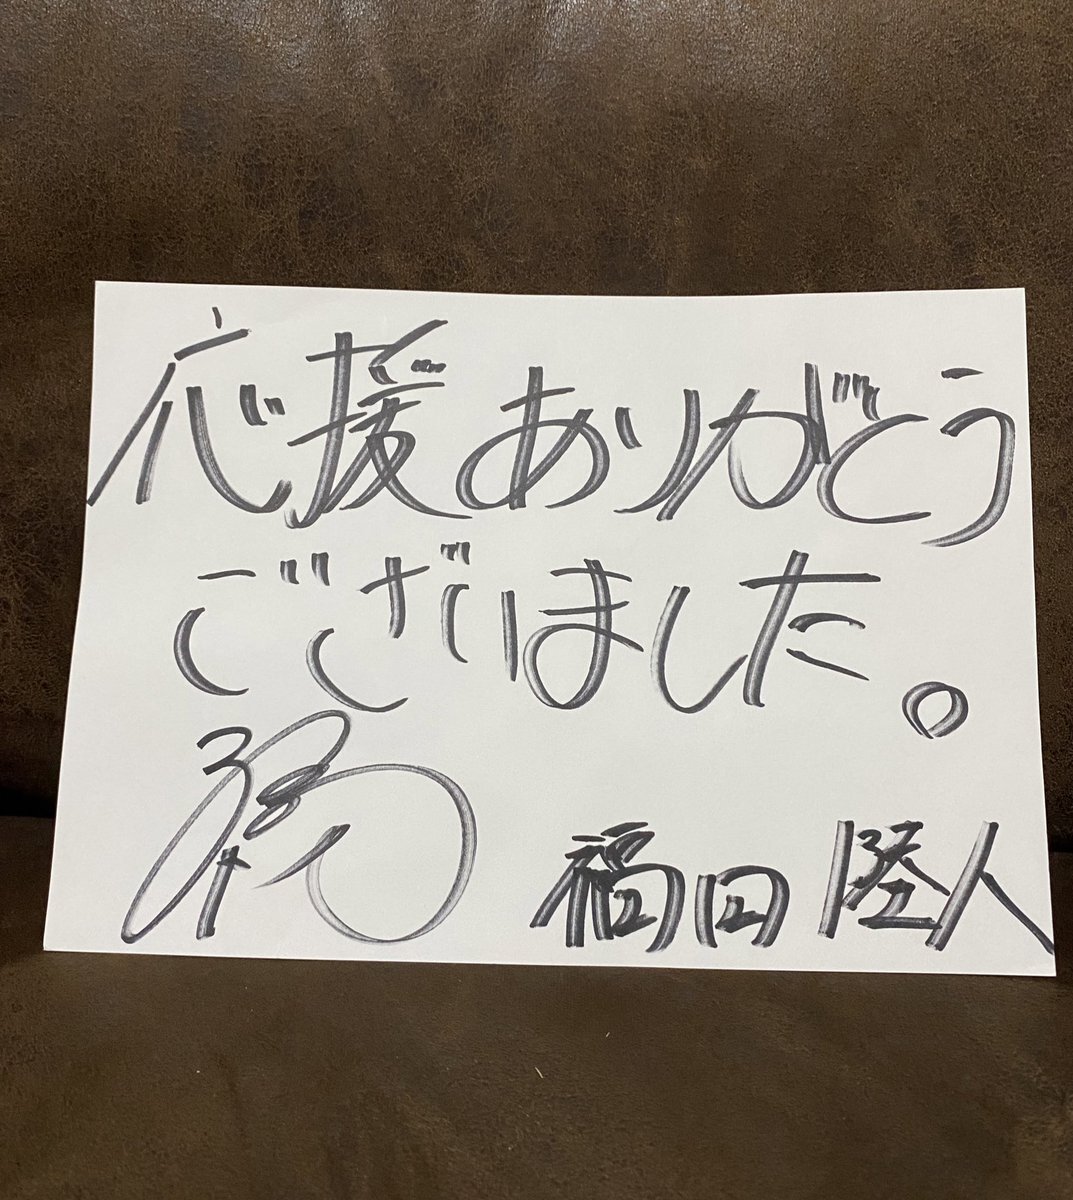 応援ありがとう
ございました。
福田 陸人